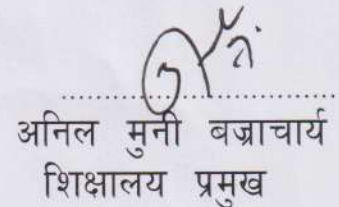 अनिल मुनी बज्राचार्य
शिक्षालय प्रमुख